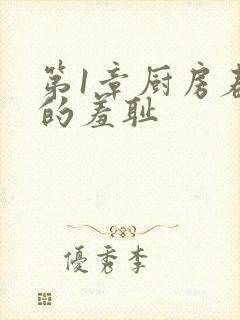 第1章厨房春
的羞耻
優秀李